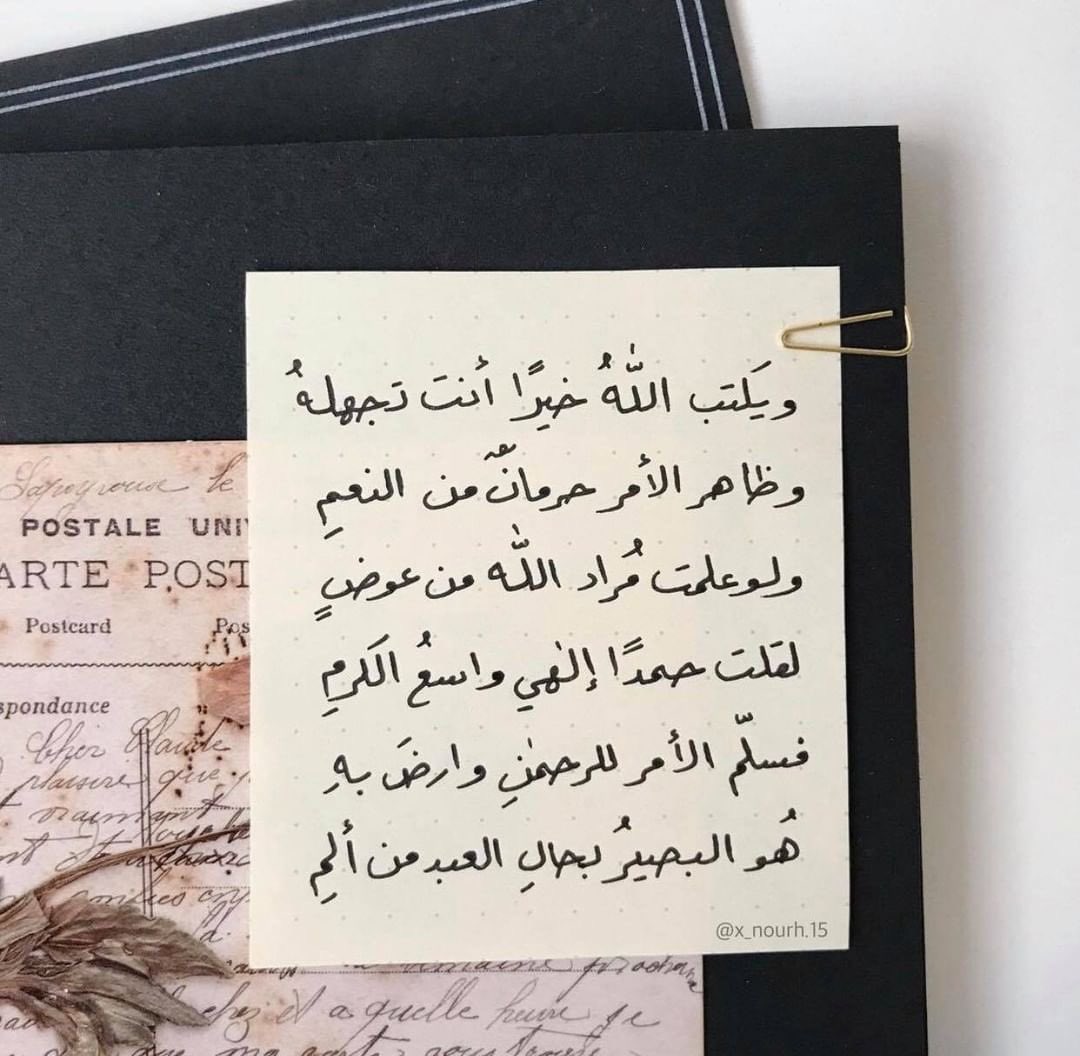 ويَكتب اللّٰهُ خيرًا أنت تجهلهُ
وظاهر الأمر حرمانٌ من النعمِ
ولو علمت مُراد اللّٰه من عوضٍ
لقلت حمدًا إلٰهي واسعُ الكَرمِ
فسلّم الأمر للرحمٰنِ وارضَ بهِ
هُو البصيرُ بحالِ العبد من ألمِ
@x_nourh.15
POSTALE UNI
ARTE POST
Postcard
Pos
spondance
Cher Claude
plaisir que
vraiment
chez
a quelle heure se